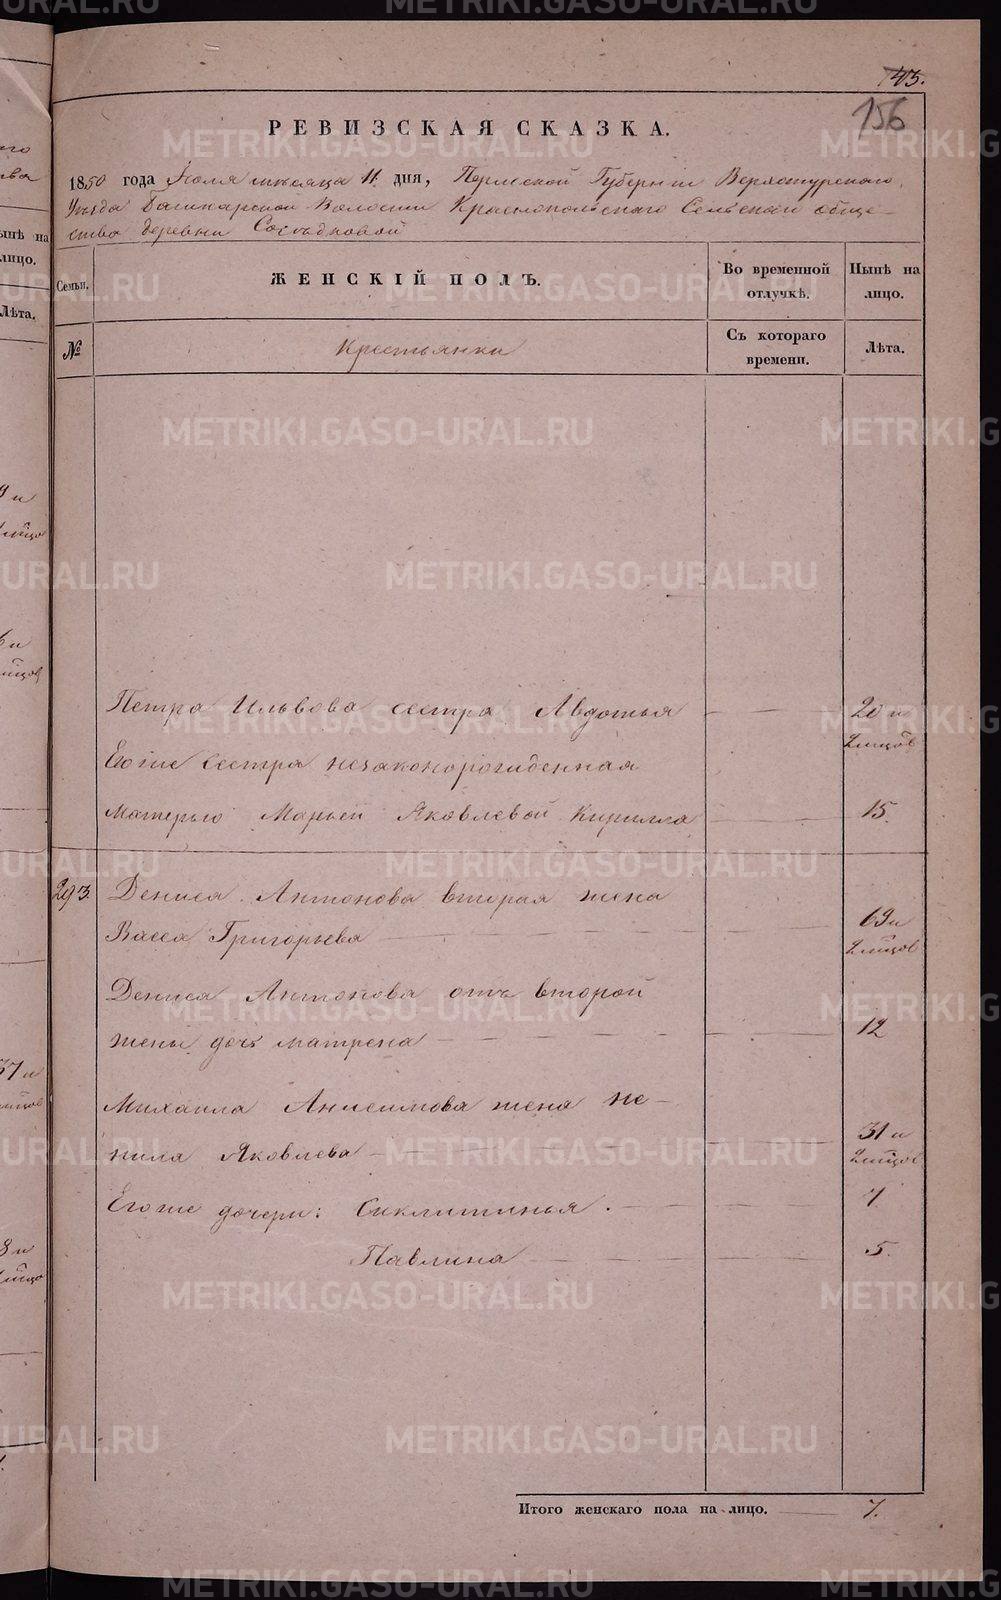 743.
156
РЕВИЗСКАЯ СКАЗКА.
1850 года Іюля мѣсяца 11 дня, Пермской Губерніи Верхотурскаго
Уѣзда Башкарской Волости Краснопольскаго Сельскаго обще-
ства деревни Сосѣдковой
Семьи. ЖЕНСКІЙ ПОЛЪ. Во временной отлучкѣ. Нынѣ на лицо.
№ Крестьянки Съ котораго времени. Лѣта.
Петра Ильвова сестра Авдотья 20 и
2 мѣсцов
Егоже Сестра незаконорожденная
матерью Марьей Яковлевой Кирилла 15.
293. Дениса Антонова вторая жена
Васса Григорьева 69 и
2 мѣсцов
Дениса Антонова отъ второй
жены дочь Матрена 12
Михаила Анисимова жена Не-
нила Яковлева 31 и
2 мѣсцов
Егоже дочери: Сиклитинья. 7
Павлина 5.
Итого женскаго пола на лицо. 7.
METRIKI.GASO-URAL.RU